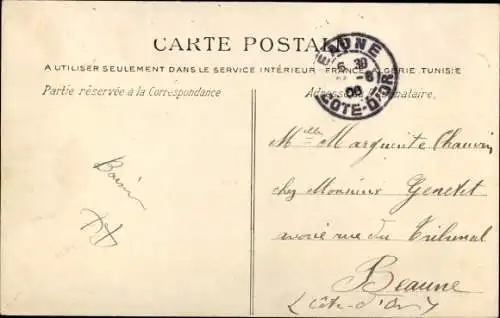 CARTE POSTALE
A UTILISER SEULEMENT DANS LE SERVICE INTÉRIEUR - FRANCE, ALGERIE, TUNISIE
Partie réservée à la Correspondance
Adresse du Destinataire.
BEAUNE
6 30
COTE-D'OR
Melle Marguerite
chez Monsieur Genetet
avoué rue du Tribunal
Beaune
(Côte-d'Or)